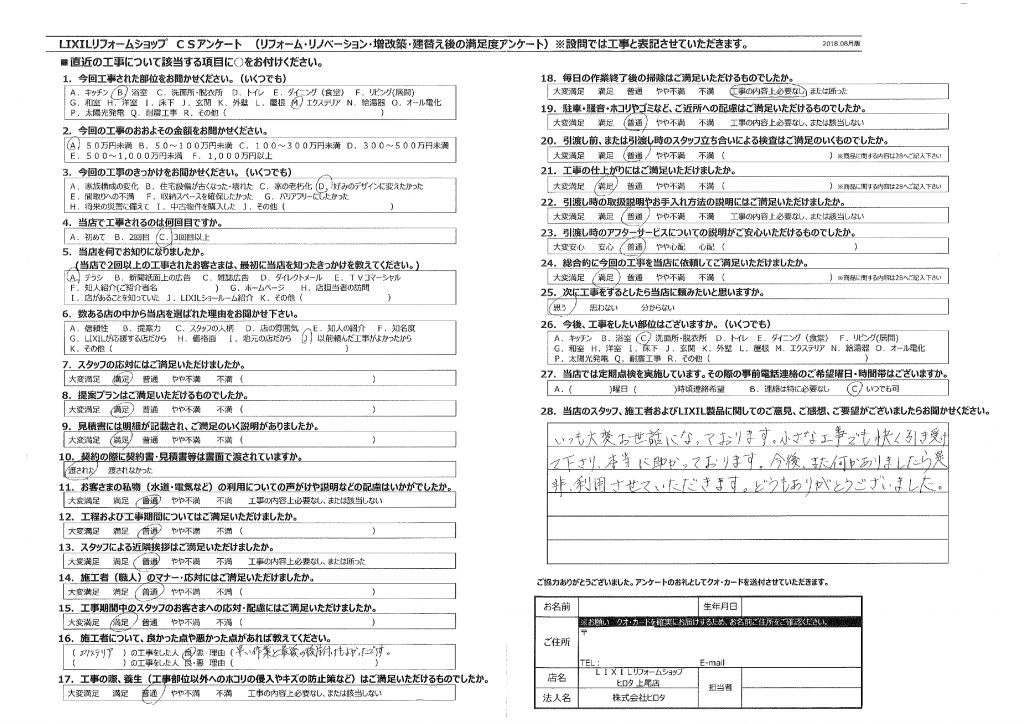 LIXILリフォームショップ CSアンケート （リフォーム・リノベーション・増改築・建替え後の満足度アンケート）※設問では工事と表記させていただきます。
2018.08月版
■直近の工事について該当する項目に○をお付けください。
1．今回工事された部位をお聞かせください。（いくつでも）
A．キッチン B．浴室 C．洗面所・脱衣所 D．トイレ E．ダイニング（食堂） F．リビング(居間)
G．和室 H．洋室 I．床下 J．玄関 K．外壁 L．屋根 M．エクステリア N．給湯器 O．オール電化
P．太陽光発電 Q．耐震工事 R．その他（ ）
2．今回の工事のおおよその金額をお聞かせください。
A．50万円未満 B．50～100万円未満 C．100～300万円未満 D．300～500万円未満
E．500～1,000万円未満 F．1,000万円以上
3．今回の工事のきっかけをお聞かせください。（いくつでも）
A．家族構成の変化 B．住宅設備が古くなった・壊れた C．家の老朽化 D．好みのデザインに変えたかった
E．間取りへの不満 F．収納スペースを確保したかった G．バリアフリーにしたかった
H．将来の災害に備えて I．中古物件を購入した J．その他（ ）
4．当店で工事されるのは何回目ですか。
A．初めて B．2回目 C．3回目以上
5．当店を何でお知りになりましたか。
（当店で2回以上の工事されたお客さまは、最初に当店を知ったきっかけを教えてください。）
A．チラシ B．新聞紙面上の広告 C．雑誌広告 D．ダイレクトメール E．TVコマーシャル
F．知人紹介(ご紹介者名 ) G．ホームページ H．店担当者の訪問
I．店があることを知っていた J．LIXILショールーム紹介 K．その他（ ）
6．数ある店の中から当店を選ばれた理由をお聞かせ下さい。
A．信頼性 B．提案力 C．スタッフの人柄 D．店の雰囲気 E．知人の紹介 F．知名度
G．LIXILが応援する店だから H．価格面 I．地元の店だから J．以前頼んだ工事がよかったから
K．その他（ ）
7．スタッフの応対にはご満足いただけましたか。
大変満足 満足 普通 やや不満 不満（ ）
8．提案プランはご満足いただけるものでしたか。
大変満足 満足 普通 やや不満 不満（ ）
9．見積書には明細が記載され、ご満足のいく説明がありましたか。
大変満足 満足 普通 やや不満 不満（ ）
10．契約の際に契約書・見積書等は書面で渡されていますか。
渡された 渡されなかった
11．お客さまの私物（水道・電気など）の利用についての声がけや説明などの配慮はいかがでしたか。
大変満足 満足 普通 やや不満 不満 工事の内容上必要なし、または該当しない
12．工程および工事期間についてはご満足いただけましたか。
大変満足 満足 普通 やや不満 不満（ ）
13．スタッフによる近隣挨拶はご満足いただけましたか。
大変満足 満足 普通 やや不満 不満 工事の内容上必要なし、または断った
14．施工者（職人）のマナー・応対にはご満足いただけましたか。
大変満足 満足 普通 やや不満 不満（ ）
15．工事期間中のスタッフのお客さまへの応対・配慮にはご満足いただけましたか。
大変満足 満足 普通 やや不満 不満（ ）
16．施工者について、良かった点や悪かった点があれば教えてください。
（ エクステリア ）の工事をした人 良・悪 理由（ 早い作業と最後の後片付もよかったです。
（ ）の工事をした人 良・悪 理由（ ）
17．工事の際、養生（工事部位以外へのホコリの侵入やキズの防止策など）はご満足いただけるものでしたか。
大変満足 満足 普通 やや不満 不満 工事の内容上必要なし、または該当しない
18．毎日の作業終了後の掃除はご満足いただけるものでしたか。
大変満足 満足 普通 やや不満 不満 工事の内容上必要なし、または断った
19．駐車・騒音・ホコリやゴミなど、ご近所への配慮はご満足いただけるものでしたか。
大変満足 満足 普通 やや不満 不満 工事の内容上必要なし、または該当しない
20．引渡し前、または引渡し時のスタッフ立ち合いによる検査はご満足のいくものでしたか。
大変満足 満足 普通 やや不満 不満（ ）※商品に関する内容は28へご記入下さい
21．工事の仕上がりにはご満足いただけましたか。
大変満足 満足 普通 やや不満 不満（ ）※商品に関する内容は28へご記入下さい
22．引渡し時の取扱説明やお手入れ方法の説明にはご満足いただけましたか。
大変満足 満足 普通 やや不満 不満 工事の内容上必要なし、または該当しない
23．引渡し時のアフターサービスについての説明がご安心いただけるものでしたか。
大変安心 安心 普通 やや心配 心配（ ）
24．総合的に今回の工事を当店に依頼してご満足いただけましたか。
大変満足 満足 普通 やや不満 不満（ ）※商品に関する内容は28へご記入下さい
25．次に工事をするとしたら当店に頼みたいと思いますか。
思う 思わない 分からない
26．今後、工事をしたい部位はございますか。（いくつでも）
A．キッチン B．浴室 C．洗面所・脱衣所 D．トイレ E．ダイニング（食堂） F．リビング(居間)
G．和室 H．洋室 I．床下 J．玄関 K．外壁 L．屋根 M．エクステリア N．給湯器 O．オール電化
P．太陽光発電 Q．耐震工事 R．その他（ ）
27．当店では定期点検を実施しています。その際の事前電話連絡のご希望曜日・時間帯はございますか。
A．（ ）曜日（ ）時頃連絡希望 B．連絡は特に必要なし C．いつでも可
28．当店のスタッフ、施工者およびLIXIL製品に関してのご意見、ご感想、ご要望がございましたらお聞かせください。
いつも大変お世話になっております。小さな工事でも快く引き受け
て下さり、本当に助かっております。今後、また何かありましたら是
非、利用させていただきます。どうもありがとうございました。
ご協力ありがとうございました。アンケートのお礼としてクオ・カードを送付させていただきます。
お名前 生年月日
※お願い クオ・カードを確実にお届けするため、お名前ご住所をご確認ください。
ご住所 〒
TEL： E-mail
店名 LIXILリフォームショップ
ヒロタ 上尾店
担当者
法人名 株式会社ヒロタ